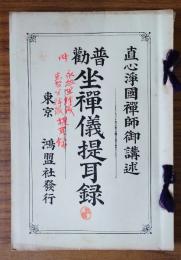 直心淨國禪師御講述
普勸
坐禪儀提耳錄
東京 鴻盟社發行
附